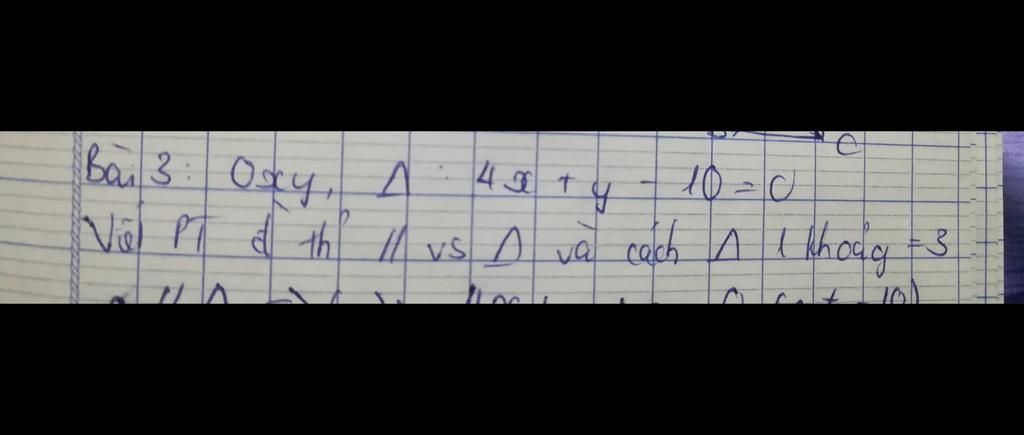 C
Bài 3: Oxy, Δ: 4x + y - 10 = 0
Viết PT đ thẳ // vs Δ và cách Δ 1 khoảg = 3